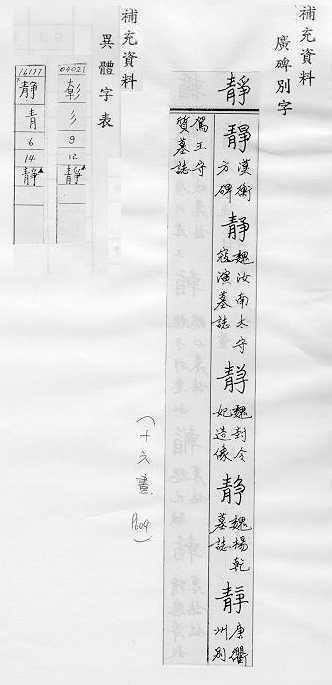 補充資料
廣碑別字
靜
靜 漢衡方碑
靜 魏汝南太守寇演墓誌
靜 魏封令妃造像
静 魏楊乾墓誌
靜 唐衢州別
駕王守質墓誌
(十六畫 P.604)
補充資料
異體字表
04021
彰
彡
9
12
靜
16177
靜
青
6
14
靜